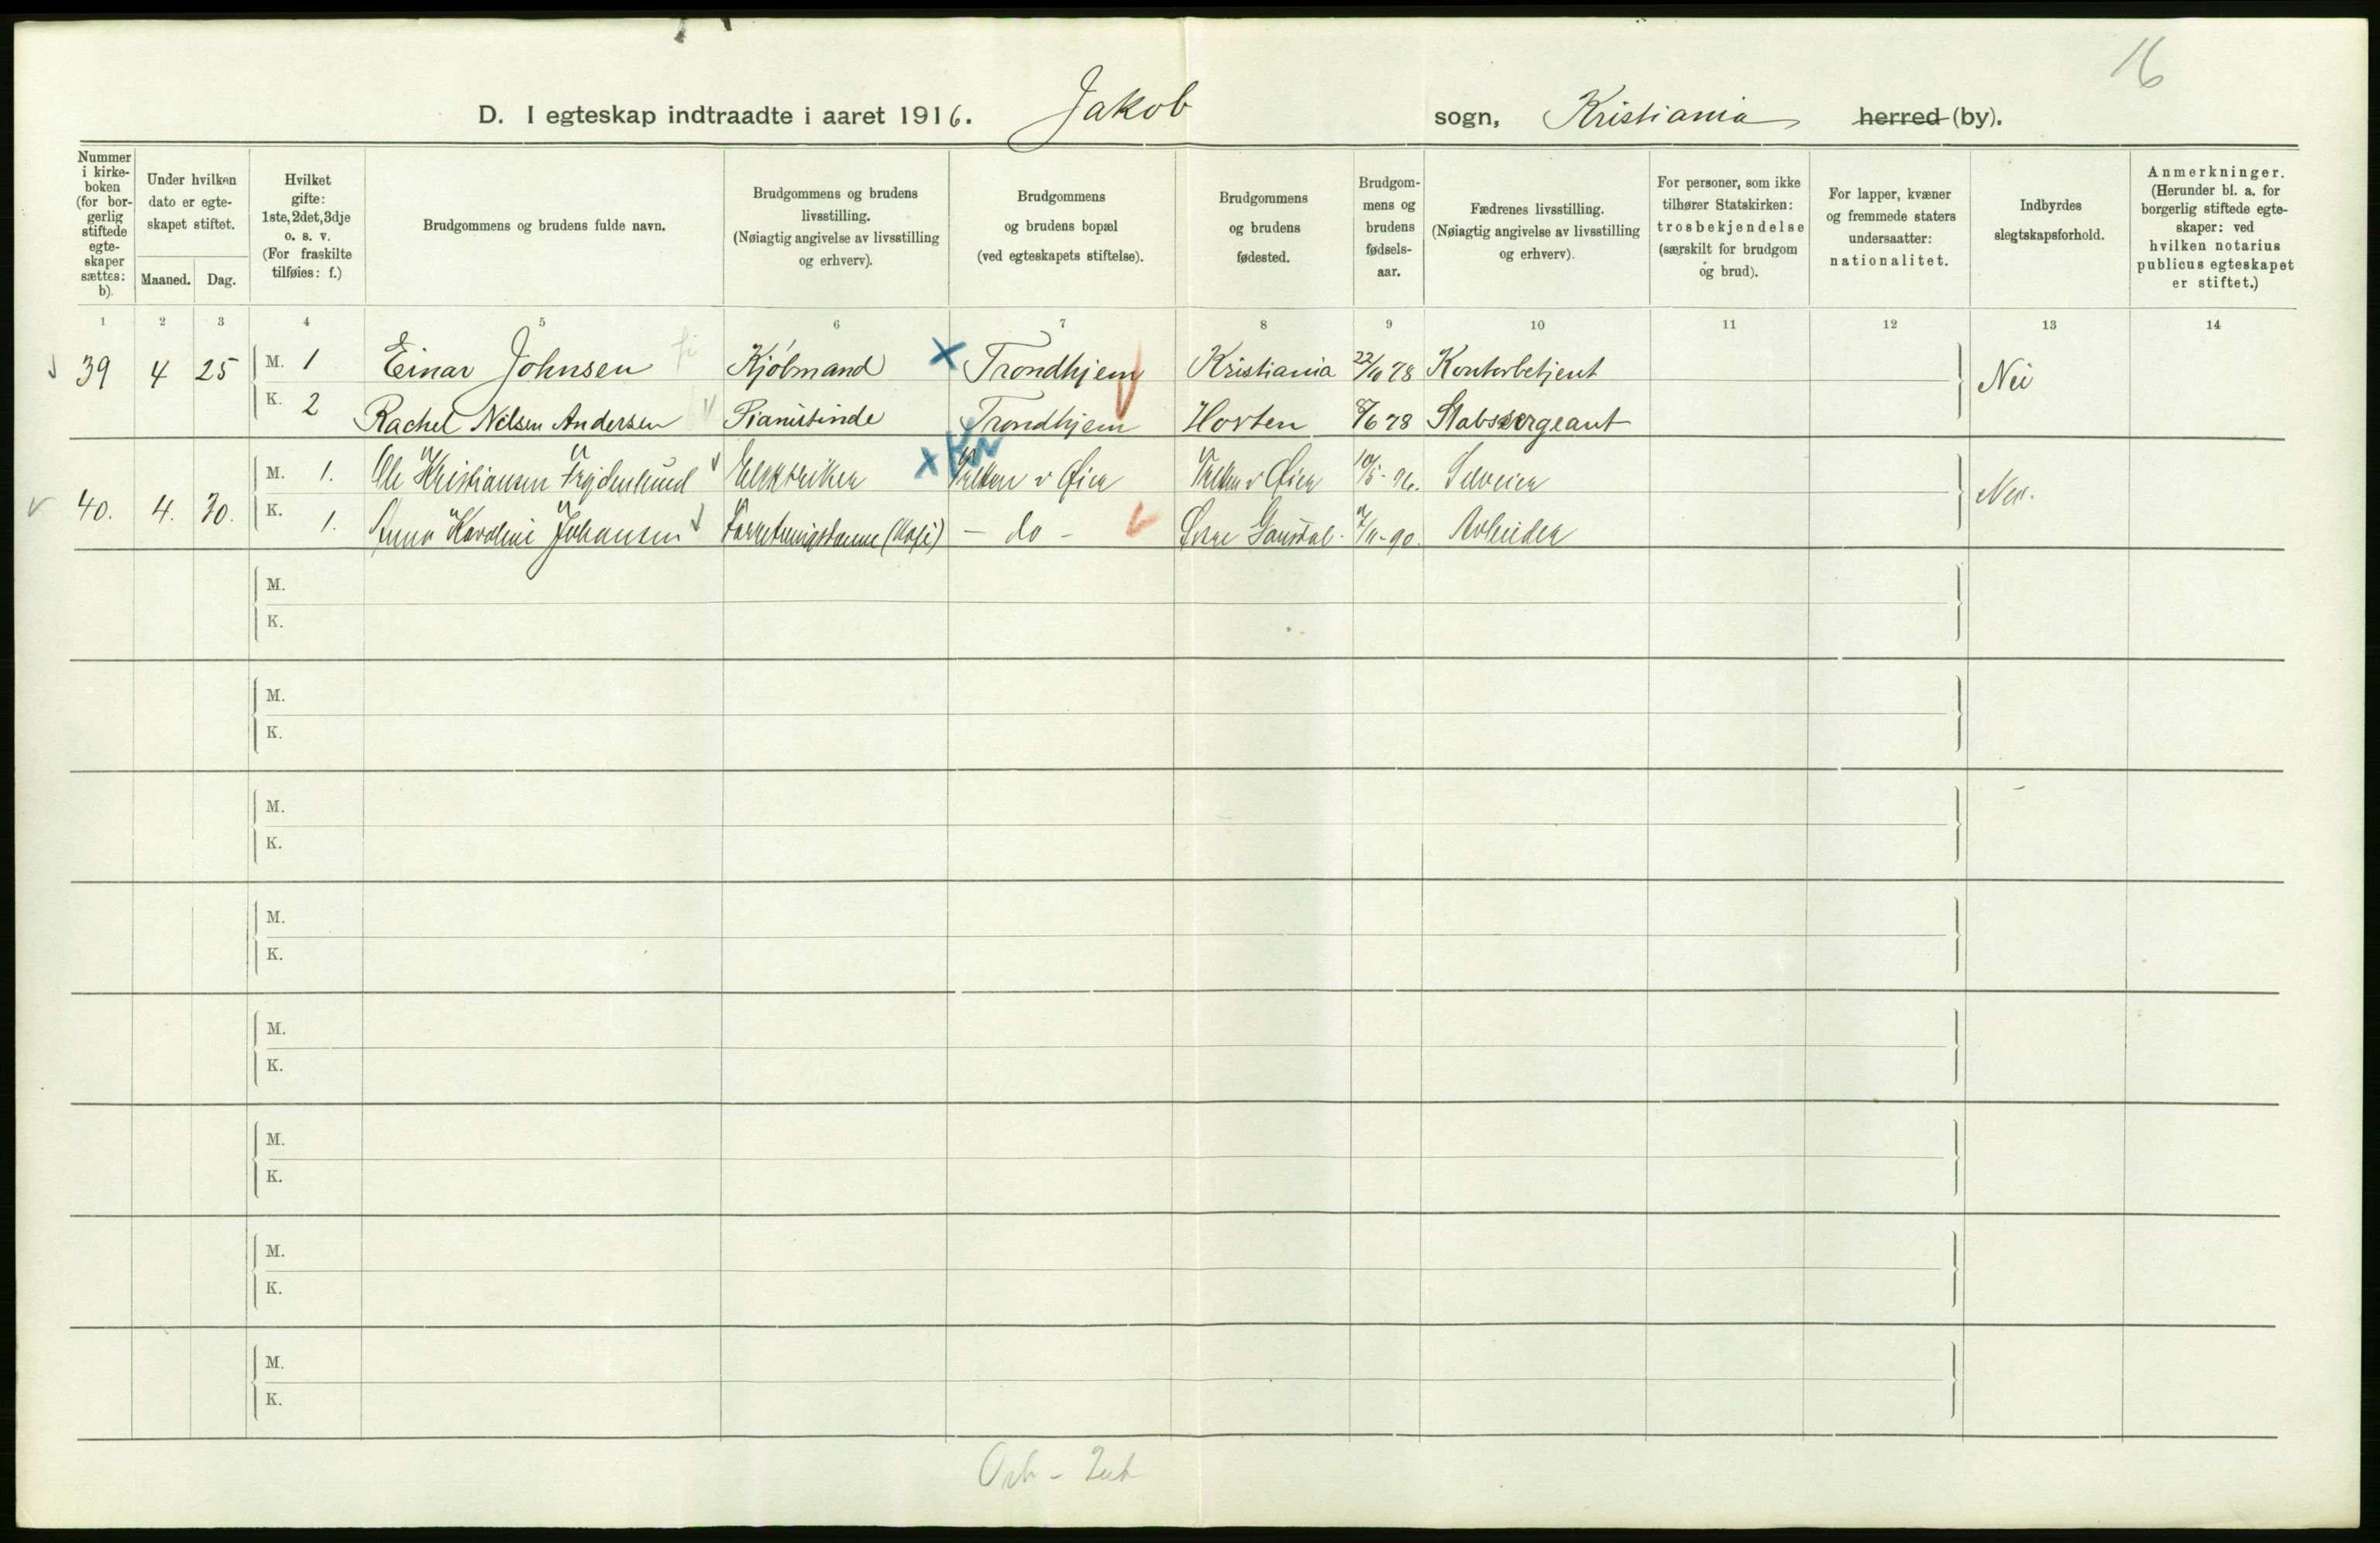 16
D. I egteskap indtraadte i aaret 1916. Jakob sogn, Kristiania herred (by).
Nummer i kirke-boken (for bor-gerlig stiftede egte-skaper sættes: b).
Under hvilken dato er egte-skapet stiftet.
Maaned. Dag.
Hvilket gifte: 1ste, 2det, 3dje o. s. v. (For fraskilte tilføies: f.)
Brudgommens og brudens fulde navn.
Brudgommens og brudens livsstilling. (Nøiagtig angivelse av livsstilling og erhverv).
Brudgommens og brudens bopæl (ved egteskapets stiftelse).
Brudgommens og brudens fødested.
Brudgom-mens og brudens fødsels-aar.
Fædrenes livsstilling. (Nøiagtig angivelse av livsstilling og erhverv).
For personer, som ikke tilhører Statskirken: trosbekjendelse (særskilt for brudgom og brud).
For lapper, kvæner og fremmede staters undersaatter: nationalitet.
Indbyrdes slegtskapsforhold.
Anmerkninger. (Herunder bl. a. for borgerlig stiftede egte-skaper: ved hvilken notarius publicus egteskapet er stiftet.)
1 2 3 4 5 6 7 8 9 10 11 12 13 14
39 4 25 M. 1 Einar Johnsen Kjøbmand Trondhjem Kristiania 78 Kontorbetjent Nei
K. 2 Rachel Nilsen Andersen Pianistinde Trondhjem Horten 78 Stabssergeant
40. 4. 30. M. 1. Ole Kristiansen Frydenlund Elektriker Øier Øier Selveier Nei.
K. 1. Anna Karoline Johansen - do - Gausdal 90. Arbeider
M.
K.
M.
K.
M.
K.
M.
K.
M.
K.
M.
K.
M.
K.
M.
K.